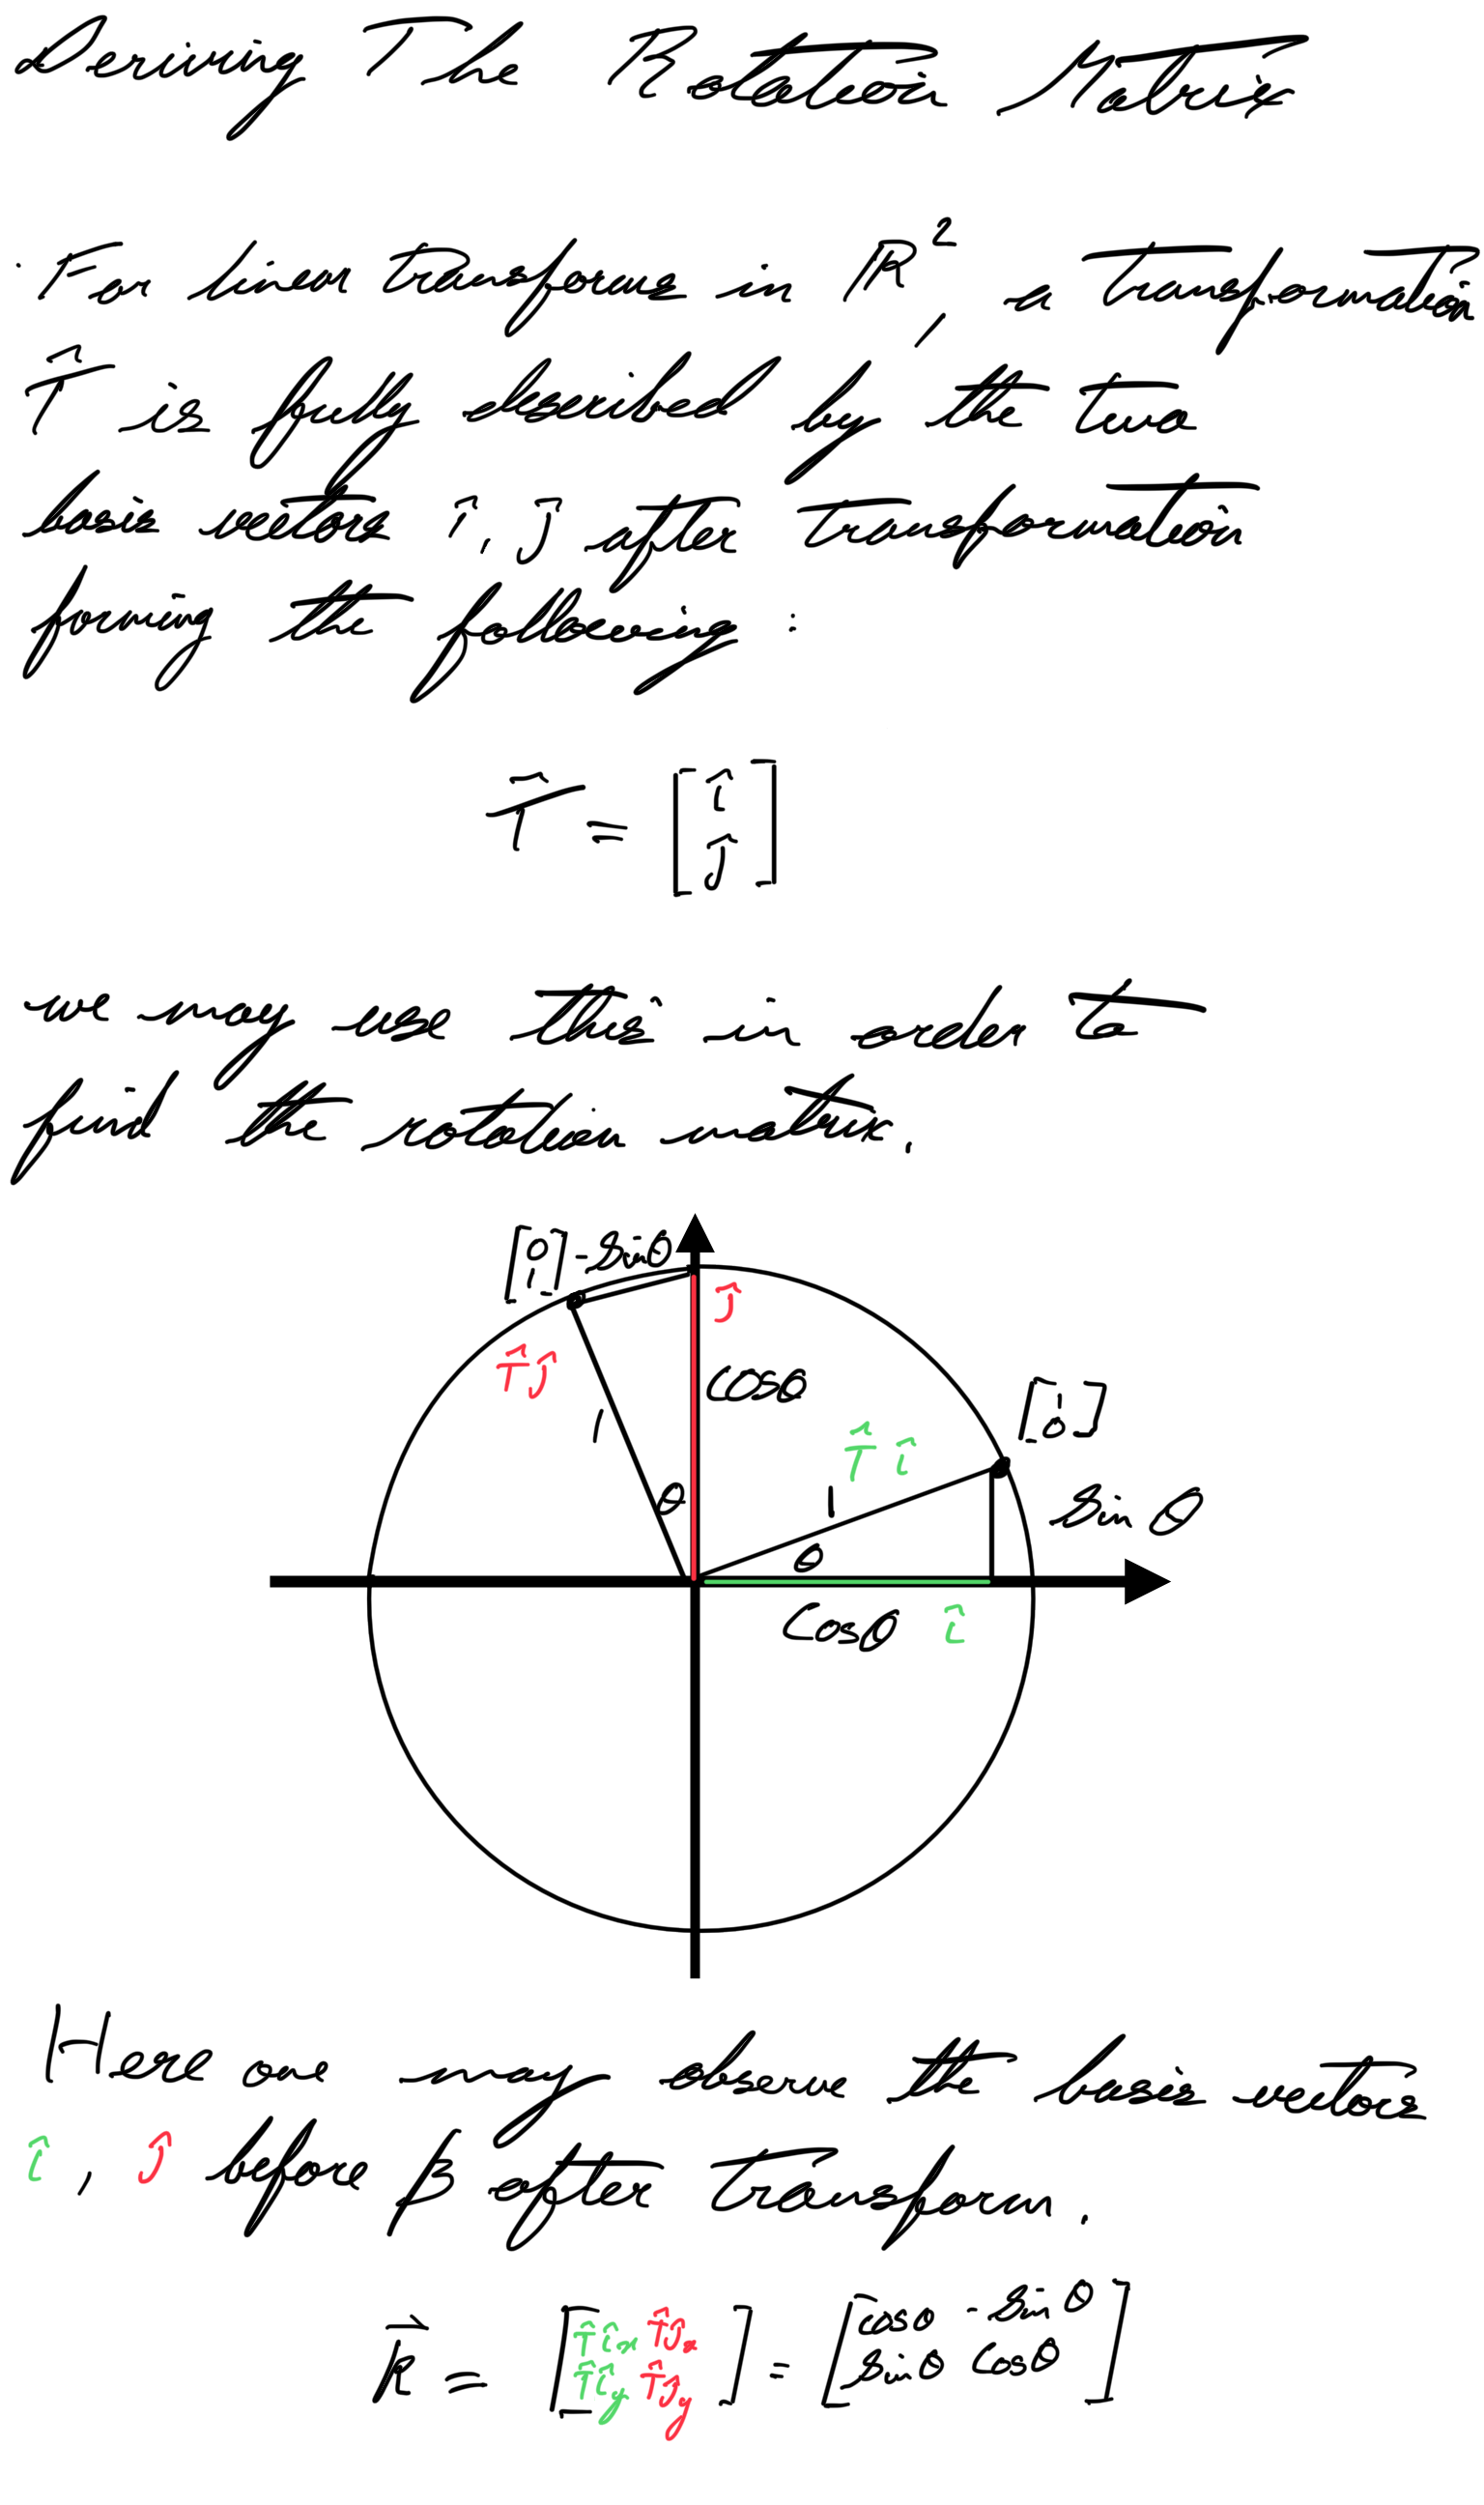 Deriving The Rotation Matrix
· For linear transforms in ℝ², a transformation
T̂ is fully described by the two
basis vectors î, ĵ after transformation
forming the following:
T̂ = [î
ĵ]
we may use this in order to
find the rotation matrix.
[0
1]
- sin θ
ĵ
T̂ĵ
1
cos θ
θ
[1
0]
T̂ î
1
sin θ
θ
cos θ
î
Here one may observe the basis vectors
î, ĵ before & after transform.
R̂ = [T̂îx T̂ĵx
T̂îy T̂ĵy] = [cos θ - sin θ
sin θ cos θ]